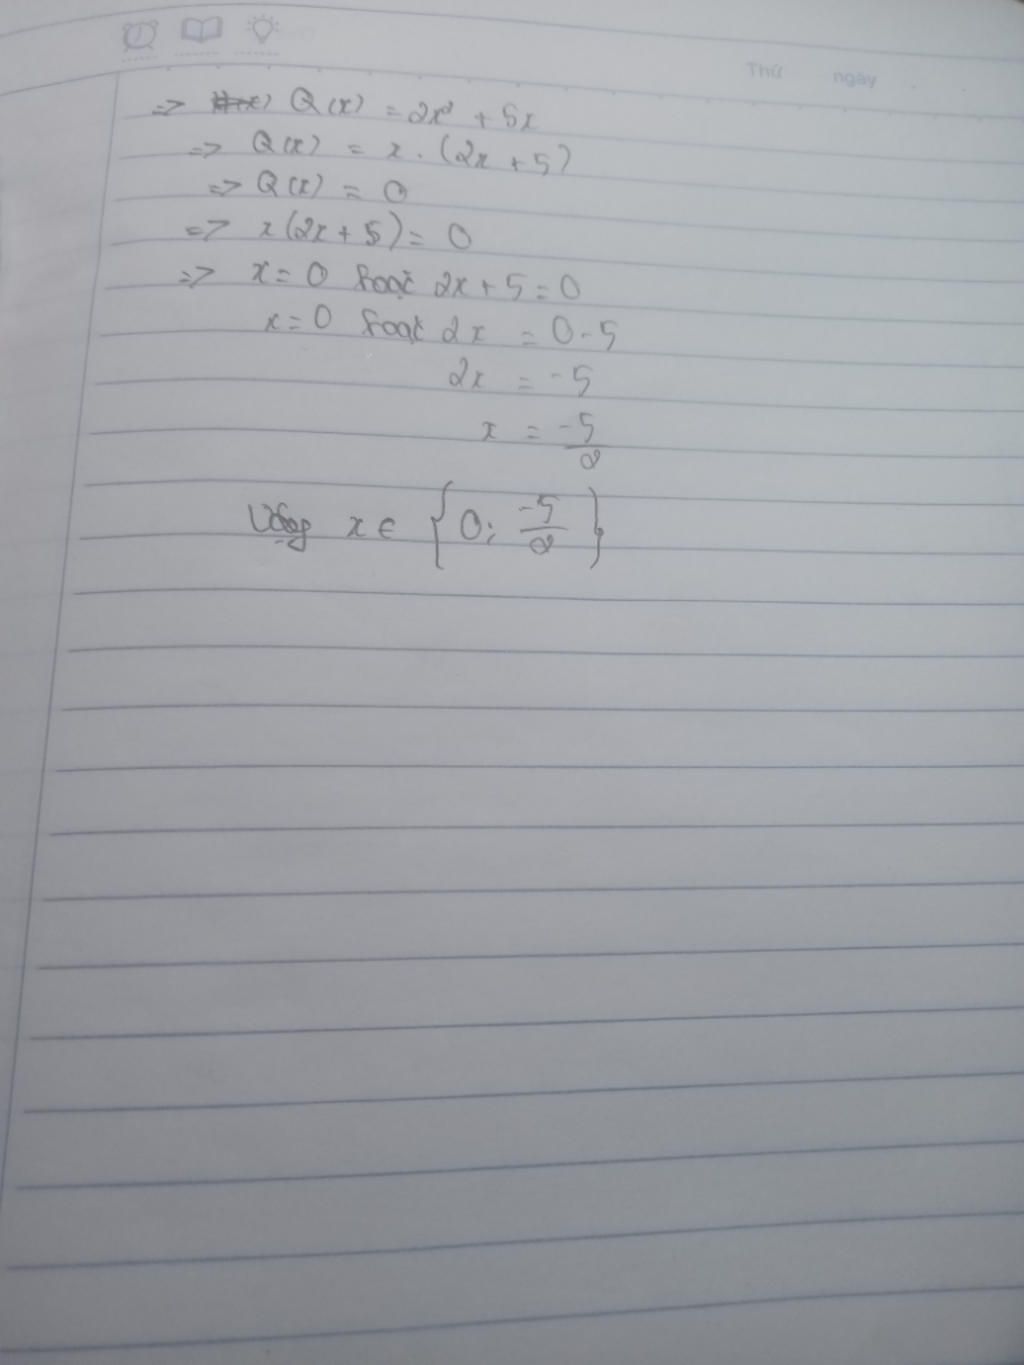 Thứ ngày
=> Q(x) = 2x² + 5x
=> Q(x) = x . (2x + 5)
=> Q(x) = 0
=> x(2x + 5) = 0
=> x = 0 hoặc 2x + 5 = 0
x = 0 hoặc 2x = 0 - 5
2x = -5
x = -5/2
Vậy x ∈ {0; -5/2}